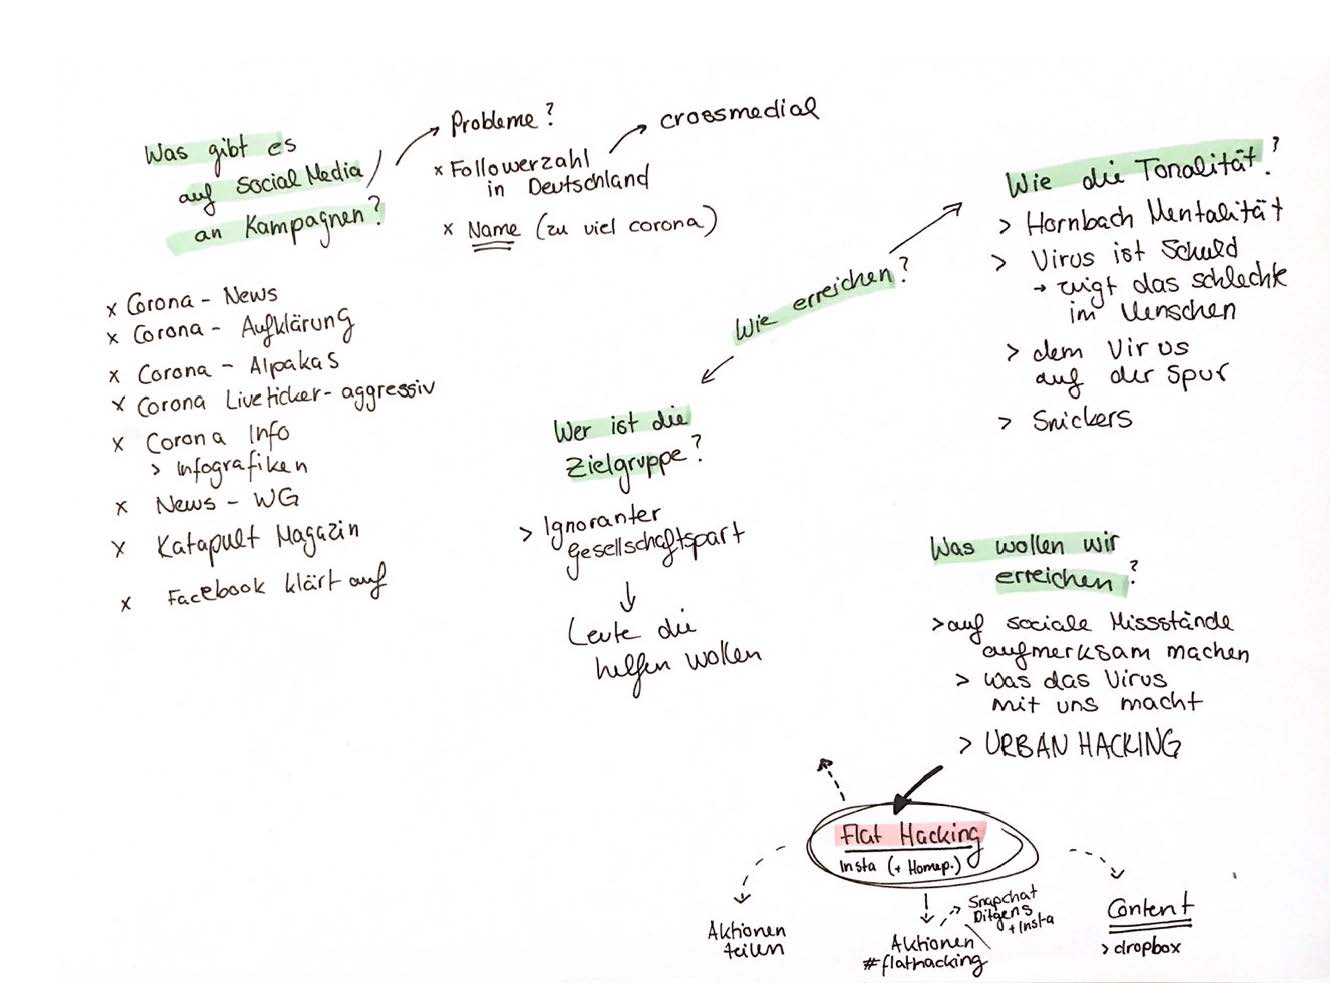 Was gibt es
auf Social Media
an Kampagnen?
Probleme?
x Followerzahl
in Deutschland
crossmedial
x Name (zu viel corona)
x Corona - News
x Corona - Aufklärung
x Corona - Alpakas
x Corona Liveticker - aggressiv
x Corona Info
> Infografiken
x News - WG
x Katapult Magazin
x Facebook klärt auf
Wie erreichen?
Wie die Tonalität?
> Hornbach Mentalität
> Virus ist Schuld
→ zeigt das schlechte
im Menschen
> dem Virus
auf der Spur
> Snickers
Wer ist die
Zielgruppe?
> Ignoranter
gesellschaftspart
Leute die
helfen wollen
Was wollen wir
erreichen?
> auf soziale Missstände
aufmerksam machen
> was das Virus
mit uns macht
> URBAN HACKING
Flat Hacking
Insta (+ Homep.)
Aktionen
teilen
Snapchat
+ Insta
Aktionen
#flathacking
Content
> dropbox